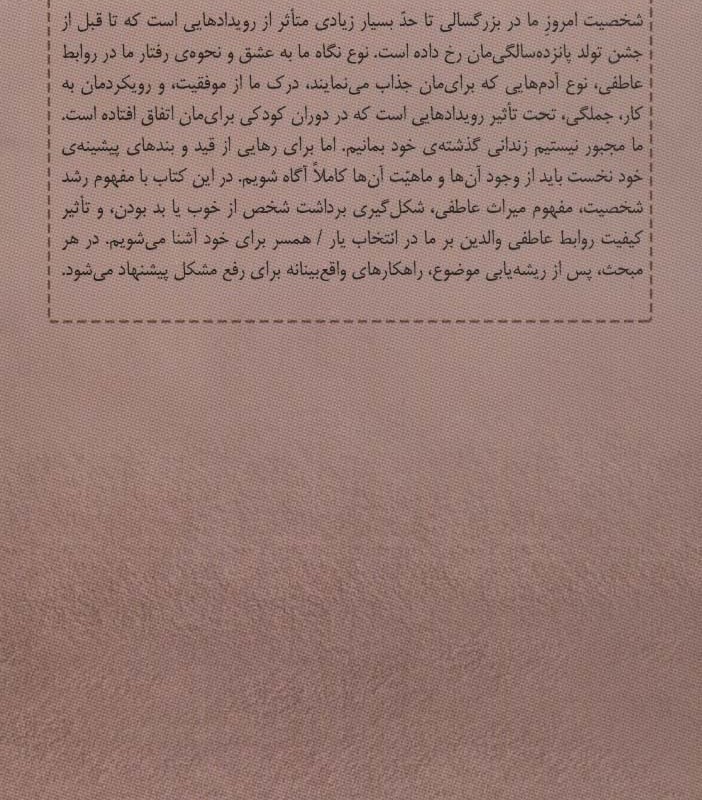 شخصیت امروزِ ما در بزرگسالی تا حدّ بسیار زیادی متأثر از رویدادهایی است که تا قبل از
جشن تولد پانزده‌سالگی‌مان رخ داده است. نوع نگاه ما به عشق و نحوه‌ی رفتار ما در روابط
عاطفی، نوع آدم‌هایی که برای‌مان جذاب می‌نمایند، درک ما از موفقیت، و رویکردمان به
کار، جملگی، تحت تأثیر رویدادهایی است که در دوران کودکی برای‌مان اتفاق افتاده است.
ما مجبور نیستیم زندانی گذشته‌ی خود بمانیم. اما برای رهایی از قید و بندهای پیشینه‌ی
خود نخست باید از وجود آن‌ها و ماهیّت آن‌ها کاملاً آگاه شویم. در این کتاب با مفهوم رشد
شخصیت، مفهوم میراث عاطفی، شکل‌گیری برداشت شخص از خوب یا بد بودن، و تأثیر
کیفیت روابط عاطفی والدین بر ما در انتخاب یار / همسر برای خود آشنا می‌شویم. در هر
مبحث، پس از ریشه‌یابی موضوع، راهکارهای واقع‌بینانه برای رفع مشکل پیشنهاد می‌شود.